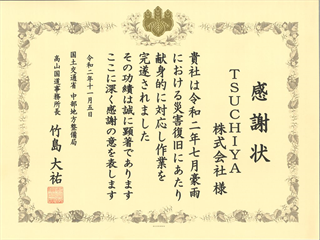 感謝状
TSUCHIYA
株式会社 様
貴社は令和二年七月豪雨
における災害復旧にあたり
献身的に対応し作業を
完遂されました
その功績は誠に顕著であります
ここに深く感謝の意を表します
令和二年十一月五日
国土交通省 中部地方整備局
高山国道事務所長 竹島 大祐